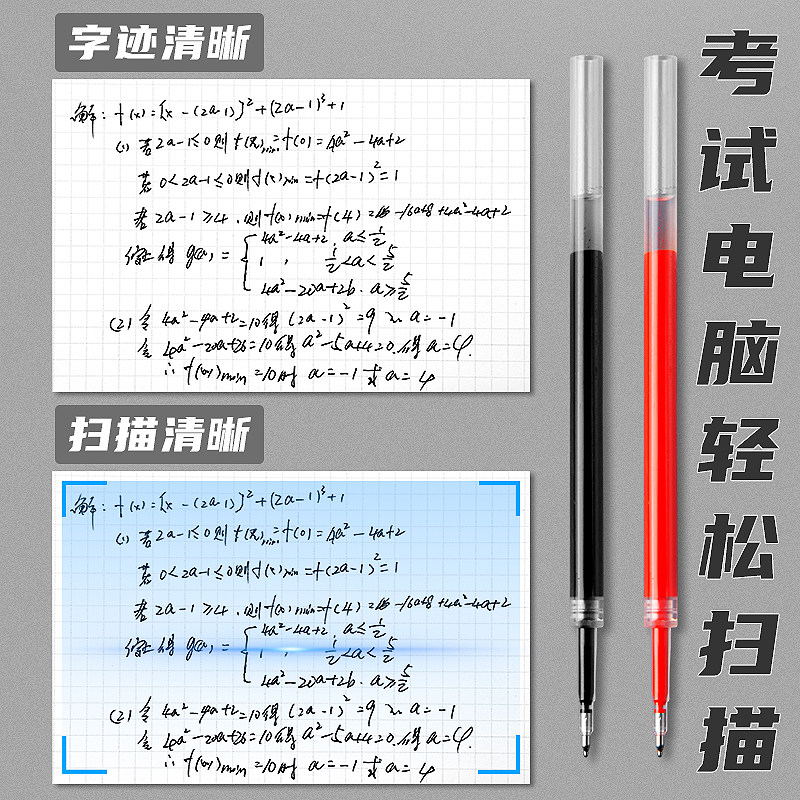 字迹清晰
解: f(x)=[x-(2a-1)]²+(2a-1)³+1
(1) 若2a-1≤0则f(x)min=f(0)=4a²-4a+2
若0<2a-1≤0则f(x)min=f(2a-1)²=1
若2a-1≥4,则f(x)min=f(4)= -16a+8+4a²-4a+2
得 g(a)={4a²-4a+2, a≤1/2
1, 1/2<a<5/2
4a²-20a+26. a≥5/2
(2) 令4a²-4a+2=10得(2a-1)²=9 a=-1
令4a²-20a+26=10得a²-5a+4=0.得a=4.
∴f(x)min=10时 a=-1或a=4
扫描清晰
解: f(x)=[x-(2a-1)]²+(2a-1)³+1
(1) 若2a-1≤0则f(x)min=f(0)=4a²-4a+2
若0<2a-1≤0则f(x)min=f(2a-1)²=1
若2a-1≥4,则f(x)min=f(4)= -16a+8+4a²-4a+2
得 g(a)={4a²-4a+2, a≤1/2
1, 1/2<a<5/2
4a²-20a+26. a≥5/2
(2) 令4a²-4a+2=10得(2a-1)²=9 a=-1
令4a²-20a+26=10得a²-5a+4=0.得a=4.
∴f(x)min=10时 a=-1或a=4
考试电脑轻松扫描